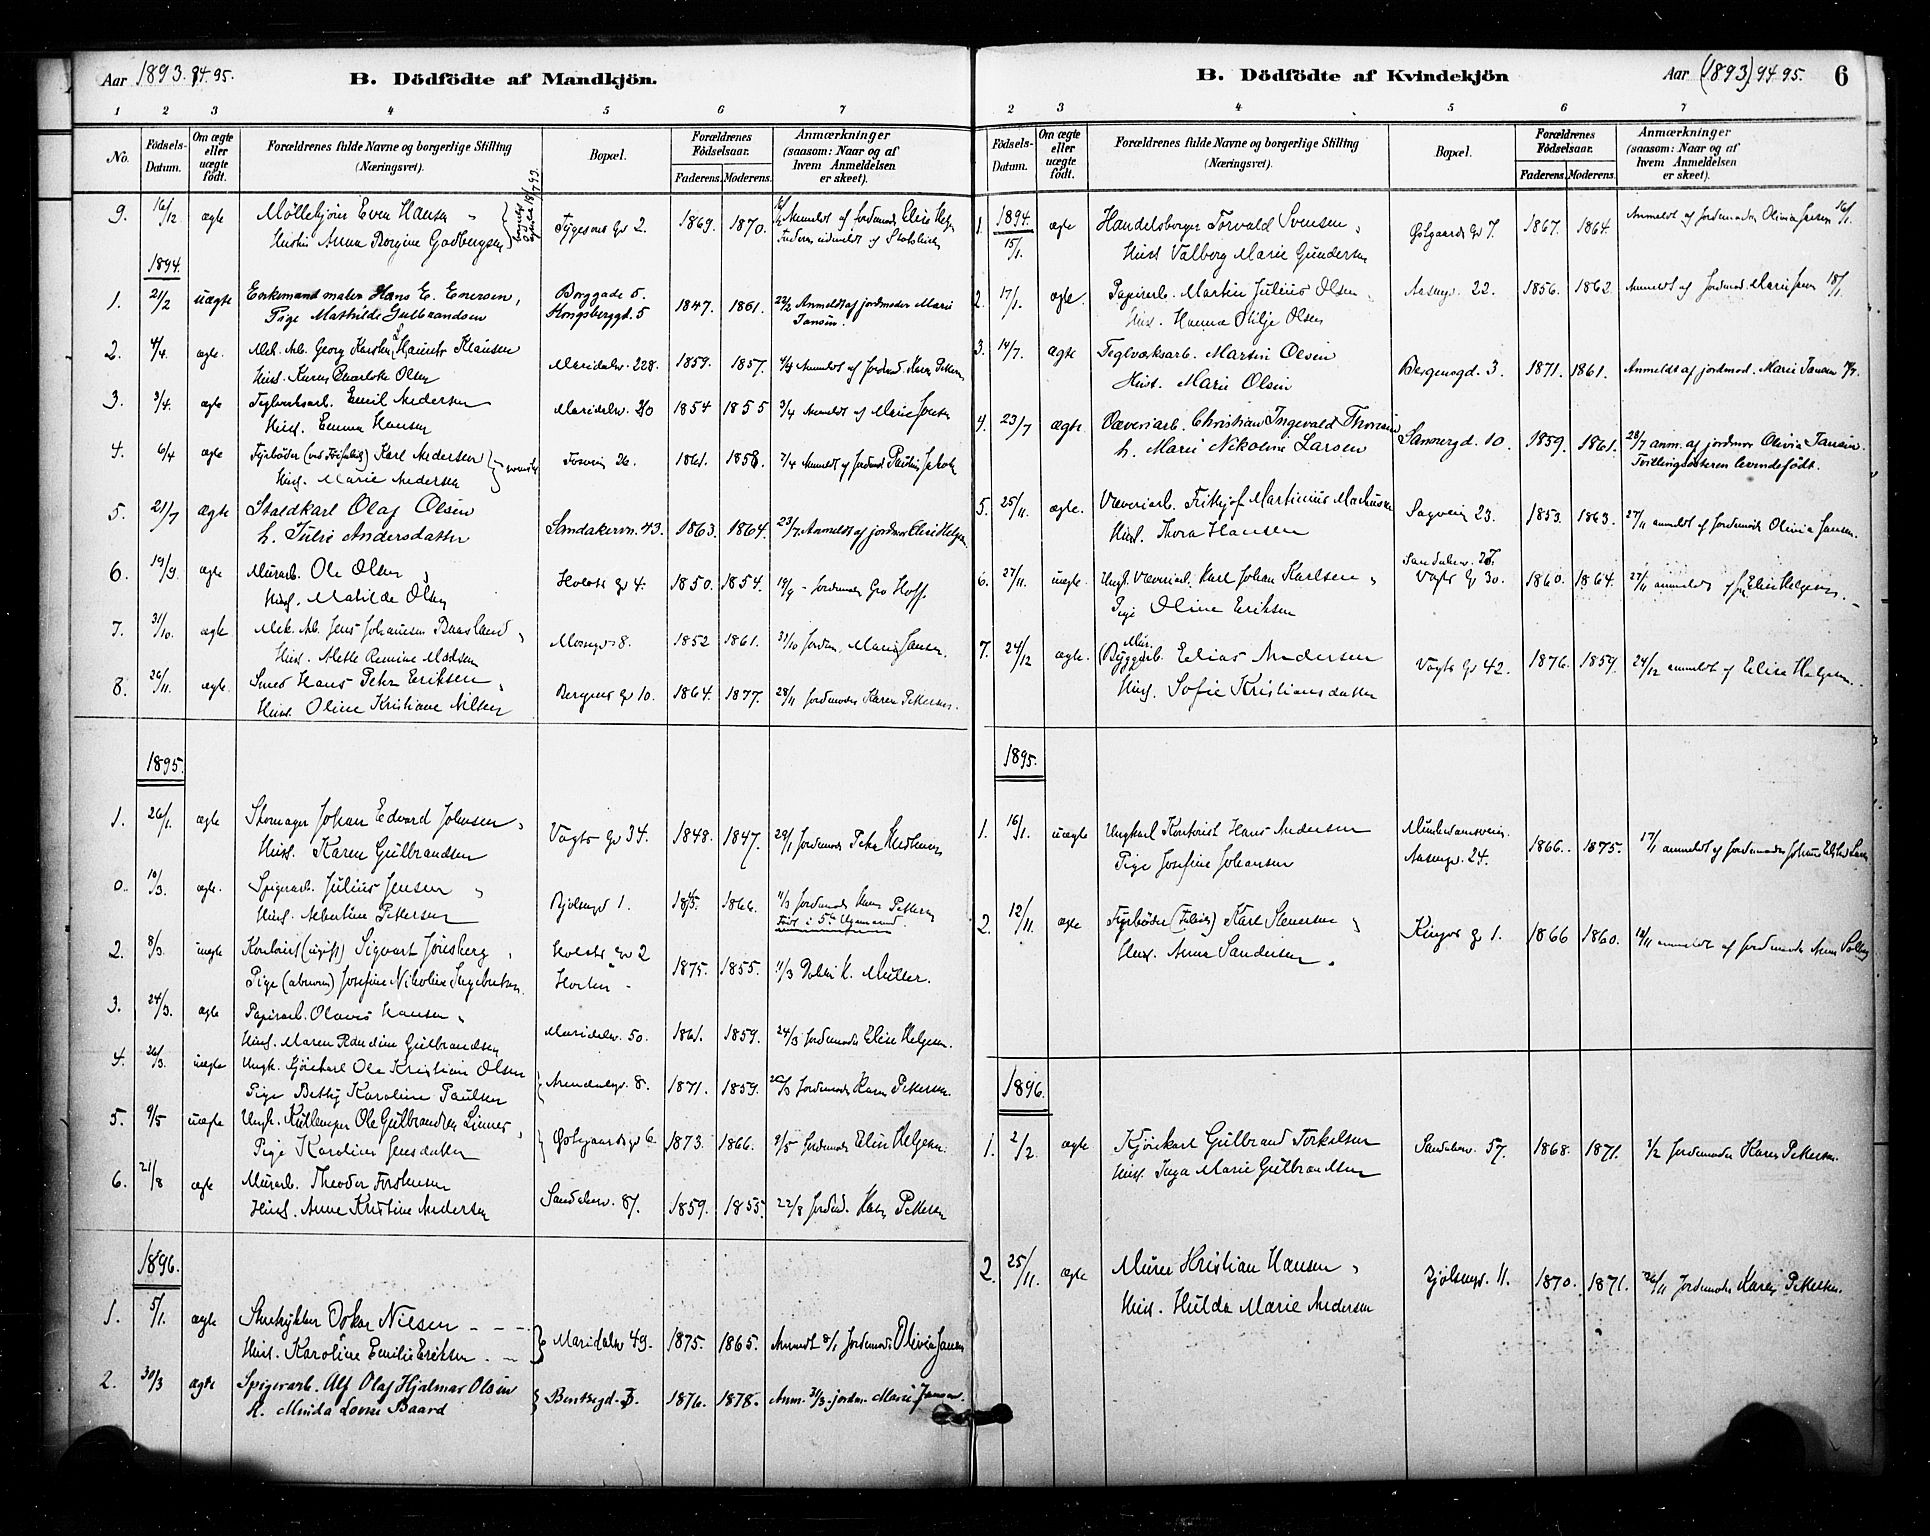 Aar 1893. 94. 95.
B. Dödfödte af Mandkjön.
1 2 3 4 5 6 7
No. Födsels-Datum. Om ægte eller uægte födt. Forældrenes fulde Navne og borgerlige Stilling (Næringsvei). Bopæl. Forældrenes Födselsaar. Faderens. Moderens. Anmærkninger (saasom: Naar og af hvem Anmeldelsen er skeet).
9. 16/12 ægte Møllekjører Even Hansen Tygesons Gd 2 1869. 1870. Anmeldt af Jordemoder Elise Helgesen
Hustru Anna Borgine Godbergsen
1894.
1. 21/2 uægte Enkemand maler Hans E. Enersen, Borggade 5. 1847. 1861. 22/2 Anmeldt af jordmoder Marie
Pige Mathilde Gulbrandsen Kongsberggd. 5 Jansen.
2. 4/4. ægte. Mek. Arb. Georg Karsten Hauritz Klausen Maridalsv. 228. 1859. 1857. 4/4 Anmeldt af Jordmd. Karen Pettersen
Hust. Karen Charlotte Olsen
3. 3/4. ægte Teglverksarb. Emil Andersen Maridalsv. 20 1854 1855 3/4 Anmeldt af Marie Jensen
Hust. Emma Hansen
4. 6/4 ægte Fyrbøder Karl Andersen Fosvein 26. 1861. 1858. 7/4 Anmeldt af Jordmd. Pauline Jakobs
Hust. Marie Andersen
5. 21/7 ægte Staldkarl Olaf Olsen Sandakervn. 43. 1863. 1864. 23/7 Anmeldt af jordmor Elise Helgesen
h. Julie Andersdatter
6. 19/9. ægte Murarb. Ole Olsen Holsts gd 4. 1850. 1854. 19/9 - Jordemoder Gro Hoff.
Hust. Matilde Olsen
7. 31/10. ægte Mek. Arb. Jens Johansen Baasland, Mosseg. 8. 1852 1861. 31/10 Jordm. Marie Jansen.
Hust. Mette Remine Madsen
8. 26/11. ægte. Smed Hans Peter Eriksen, Bergens Gd 10. 1864. 1877. 28/11 Jordemoder Karen Pettersen.
Hust. Oline Kristiane Nilsen
1895.
1. 26/1. ægte Skomager Johan Edvard Johnsen, Vogts Gd 34. 1848. 1847. 29/1 Jordemoder Petra
Hust. Karen Gulbrandsen
0. 10/3. ægte. Spigerarb. Julius Jensen Bjølsengd 1. 1866. 11/3 Jordemoder Karen Pettersen
Hust. Albertine Pettersen Født i 5te Svmaaned.
2. 8/3. uægte Kontorist (ugift) Sigvart Jonsberg, Holsts Gd 2 1875. 1855. 11/3 Doktor K. Müller.
Pige Josefine Nikoline Ingebretsen. Horten -
3. 24/3. ægte Papirarb. Olaves Hansen, Maridalsv. 50. 1861. 1859. 24/3 Jordemoder Elise Helgesen.
Hust. Maren Randine Gulbrandsen
4. 26/3. uægte Ungk. Kjørekarl Ole Kristian Olsen Arendalsgd. 8. 1871. 1859. 26/3 Jordemoder Karen Pettersen.
Pige Betty Karoline Paulsen
5. 9/5 uægte Ungk. Kullemper Ole Gulbrandsen Linnes, Østgaardsgd 6. 1873. 1866. 9/5 Jordemoder Elise Helgesen.
Pige Karoline Jensdatter
6. 21/8 ægte Murarb. Theodor Torstensen Sandakerv. 81. 1859. 1855. 22/8 Jordmd. Karen Pettersen
Hust. Anne Kristine Andersen
1896.
1. 5/1. ægte Oskar Nilsen - - - Maridalsv 49. 1875. 1865. Anmeldt 8/1 Jordemoder Olivia Jansen
Hust. Karoline Emilie Eriksen. -
2. 30/3 ægte Spigerarb. Alf Olaf Hjalmar Olsen Bentsegd. 3. 1876. 1878. Anm. 31/3. jordm. Marie Jansen.
H. Minda Lovise Baard
B. Dödfödte af Kvindekjön
Aar (1893) 94. 95. 6
2 3 4 5 6 7
Födsels-Datum. Om ægte eller uægte födt. Forældrenes fulde Navne og borgerlige Stilling (Næringsvei). Bopæl. Forældrenes Födselsaar. Faderens. Moderens. Anmærkninger (saasom: Naar og af hvem Anmeldelsen er skeet).
1894.
1. 15/1. ægte Handelsborger Torvald Svensen, Østgaards Gd 7. 1867. 1864. Anmeldt af Jordemoder Olivia Jansen 16/1.
Hust Valborg Marie Gundersen
2. 17/1. ægte. Papirarb. Martin Julius Olsen, Aasengd. 22. 1856. 1862. Anmeldt af Jordmod. Marie Jansen 18/1.
Hust. Hanna Silje Olsen
3. 14/7. ægte Teglværksarb. Martin Olsen Bergensgd. 3. 1871. 1861. Anmeldt af jordmod. Marie Jansen
Hust. Marie Olsen
4. 23/7 ægte. Væveriarb. Christian Ingevald Thoresen Sannergd. 10. 1859. 1861. 28/7 anm. af jordmor Olivia Jansen.
h. Marie Nikoline Larsen Tvillingsøsteren levendefødt.
5. 25/11. ægte. Væveriarb. Frithjof Martinius Markussen Sagvein 23. 1853. 1863. 27/11 anmeldt af Jordemoder Olivia Jansen.
Hust. Thora Hansen
6. 27/11. uægte. Ungk. Væveriarb. Karl Johan Karlsen, Vogts Gd 30. 1860. 1864. 27/11 anmeldt af Elise Helgesen.
Pige Oline Eriksen
7. 24/12 ægte. Elias Andersen Vogts Gd 42. 1876. 1859. 24/12 anmeldt af Elise Helgesen.
Hust. Sofie Kristiansdatter
1895.
1. 16/1. uægte Ungkarl Kontorist Hans Andersen 1866. 1875. 17/1 anmeldt af Jordemoder
Pige Josefine Johansen Aasengd. 24.
2. 12/11. ægte Fyrbøder Karl Svensen Kinges gd 1. 1866 1860. anmeldt af Jordemoder
Hust. Anna Sandersen.
1896.
1. 2/2. ægte Kjørekarl Gulbrand Torkelsen Sandakerv. 57. 1868. 1871. 3/2 Jordemoder Karen Pettersen.
Hust. Inga Marie Gulbrandsen
2. 25/11. ægte Murer Kristian Hansen, Bjølsengd. 11. 1870. 1871. 26/11 Jordemoder Karen Pettersen.
Hust. Hulda Marie Andersen